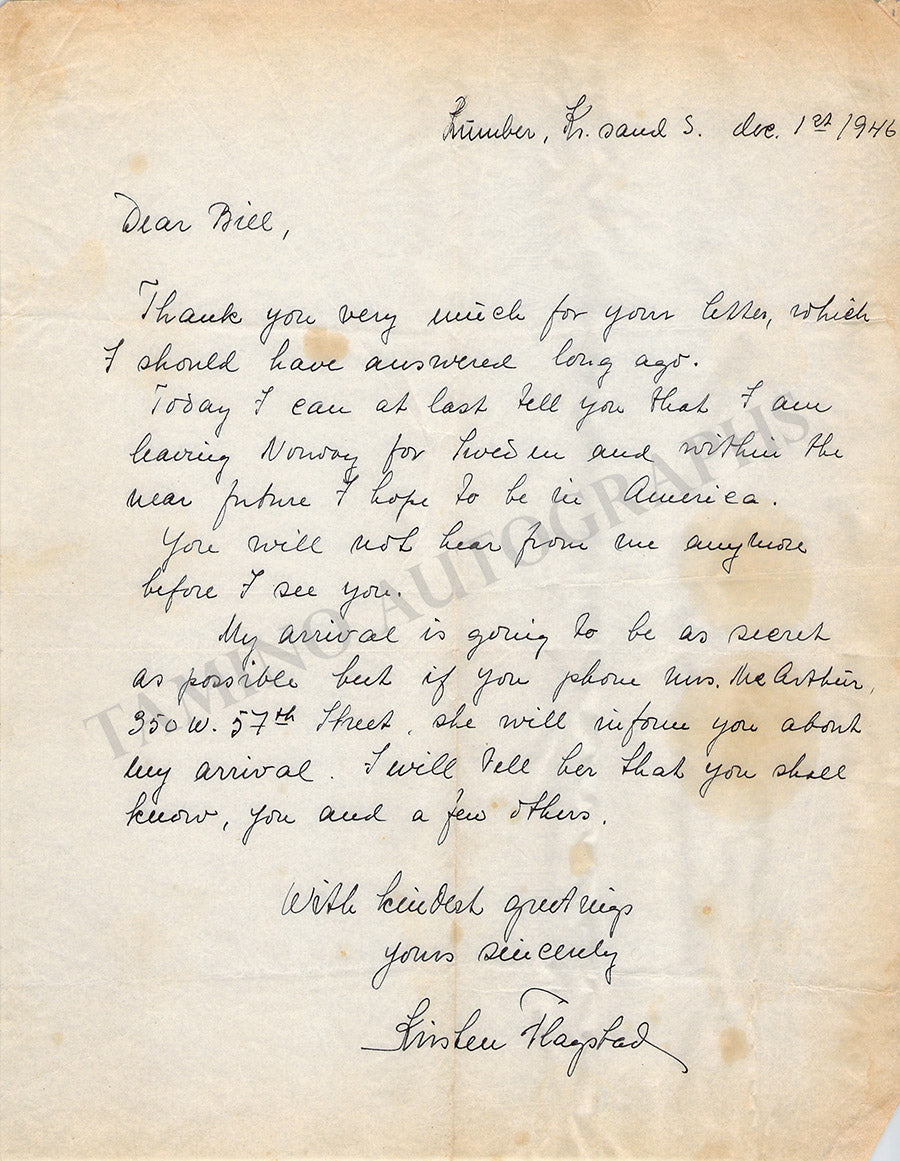 Kumber, Kr. sand S. dec. 1st 1946
Dear Bill,
Thank you very much for your letter, which
I should have answered long ago.
Today I can at last tell you that I am
leaving Norway for Sweden and within the
near future I hope to be in America.
You will not hear from me anymore
before I see you.
My arrival is going to be as secret
as possible but if you phone Mrs. McArthur,
350 W. 57th Street, she will inform you about
my arrival. I will tell her that you shall
know, you and a few others.
With kindest greetings
yours sincerely
Kirsten Flagstad
TAMINO AUTOGRAPHS